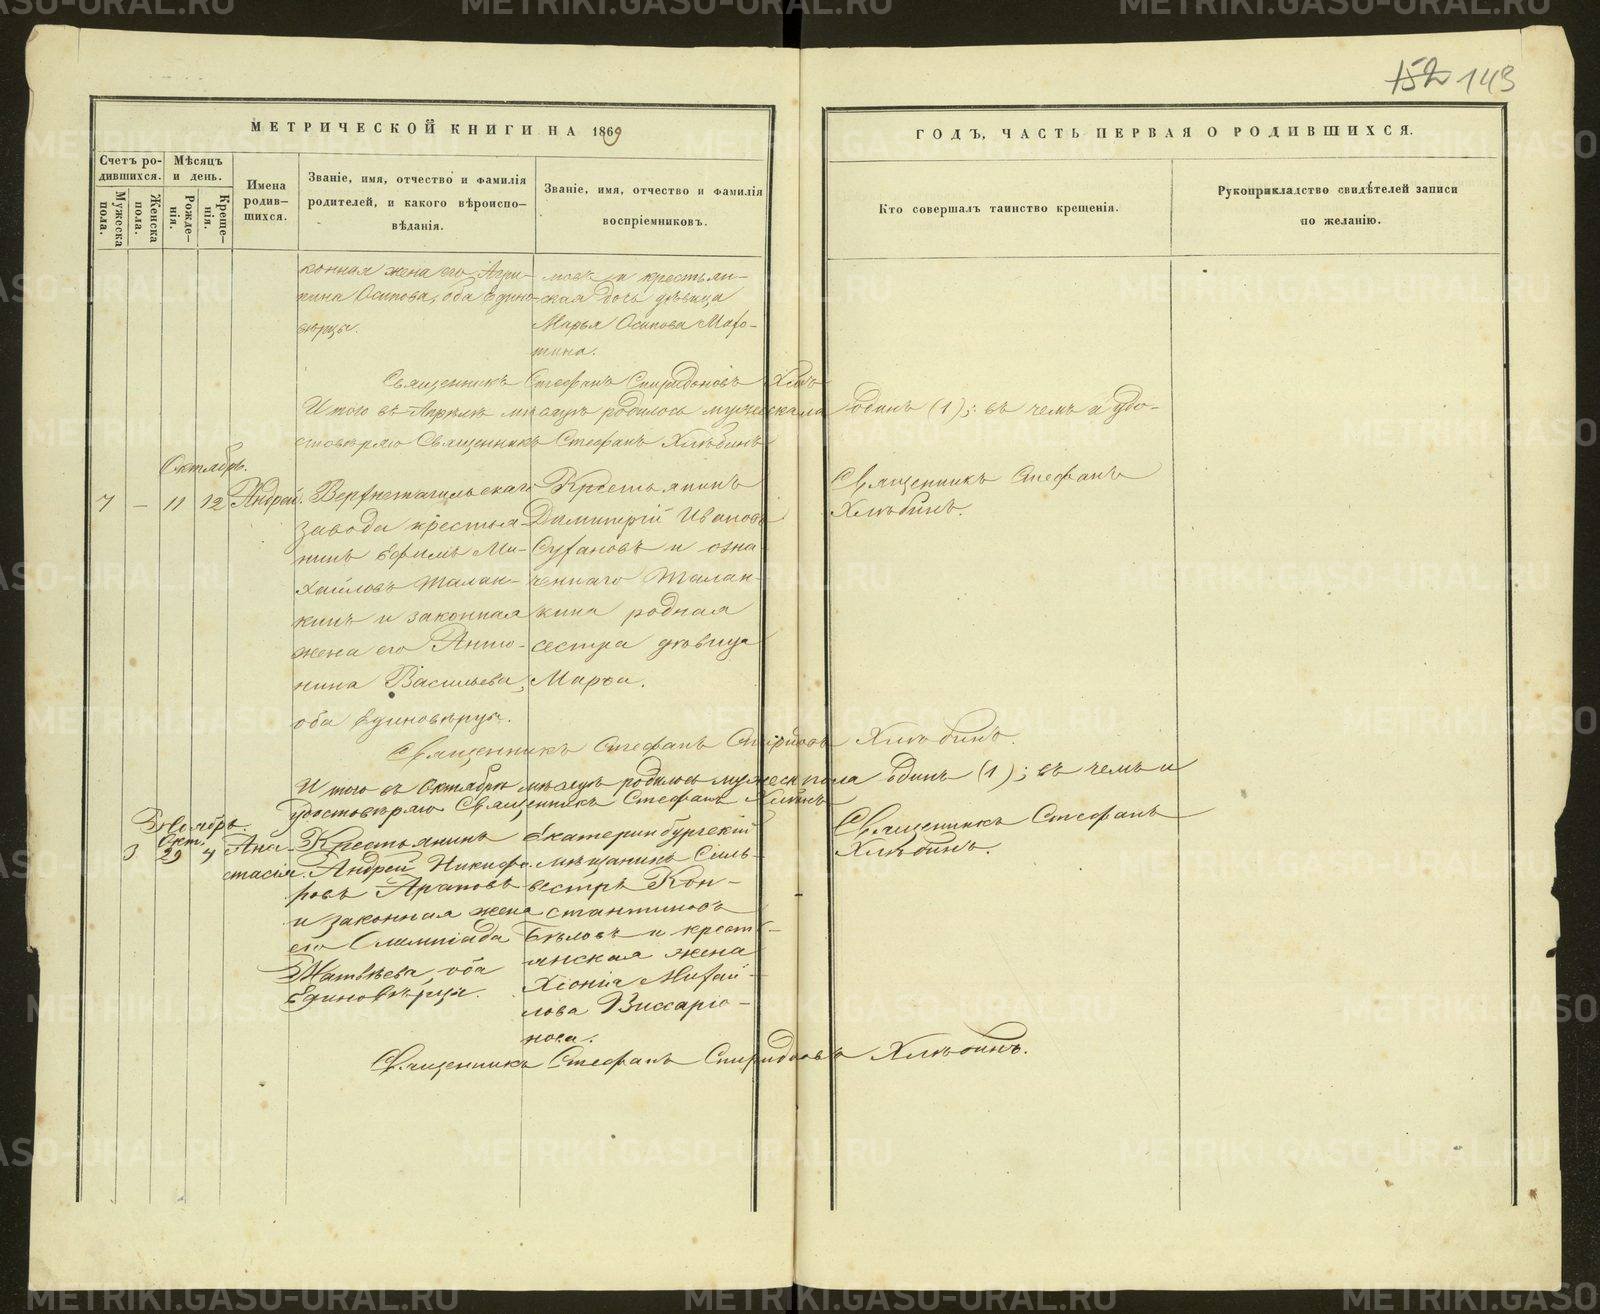 152 143
МЕТРИЧЕСКОЙ КНИГИ НА 1869
ГОДЪ, ЧАСТЬ ПЕРВАЯ О РОДИВШИХСЯ.
Счетъ ро-
дившихся.
Мужеска
пола.
Женска
пола.
Мѣсяцъ
и день.
Рожде-
нія.
Креще-
нія.
Имена
родив-
шихся.
Званіе, имя, отчество и фамилія
родителей, и какого вѣроиспо-
вѣданія.
Званіе, имя, отчество и фамилія
воспріемниковъ.
Кто совершалъ таинство крещенія.
Рукоприкладство свидѣтелей записи
по желанію.
конная жена его Агри-
пина Осипова, оба Едино-
вѣрцы.
мовъ и крестьян-
ская дочь дѣвица
Марья Осипова
Священникъ Стефанъ Спиридоновъ
Итого въ Апрѣлѣ мѣсяцѣ родилось мужеска пола одинъ (1); въ чемъ и удо-
стовѣряю Священникъ Стефанъ Хлѣбинъ
Октябрь.
7 — 11 12 Андрей.
Верхнетагильскаго
завода крестья-
нинъ Ефимъ Ми-
хайловъ Талан-
кинъ и законная
жена его Анто-
нина Васильева,
оба Единовѣрцы.
Крестьянинъ
Димитрій Ивановъ
Сухановъ и озна-
ченнаго Талан-
кина родная
сестра дѣвица
Марѳа.
Священникъ Стефанъ
Хлѣбинъ.
Священникъ Стефанъ Спиридоновъ Хлѣбинъ.
Итого въ Октябрѣ мѣсяцѣ родилось мужеска пола одинъ (1); въ чемъ и
удостовѣряю Священникъ Стефанъ Хлѣбинъ
Ноябрь.
Окт.
3 29 4 Ана-
стасія.
Крестьянинъ
Андрей Никифо-
ровъ Араповъ
и законная жена
его Олимпіада
Матвѣева, оба
Единовѣрцы.
Екатеринбургскій
мѣщанинъ Силь-
вестръ Кон-
стантиновъ
Бѣловъ и кресть-
янская жена
Хіонія Михай-
лова Виссаріо-
нова.
Священникъ Стефанъ
Хлѣбинъ.
Священникъ Стефанъ Спиридоновъ Хлѣбинъ.
METRIKI.GASO-URAL.RU